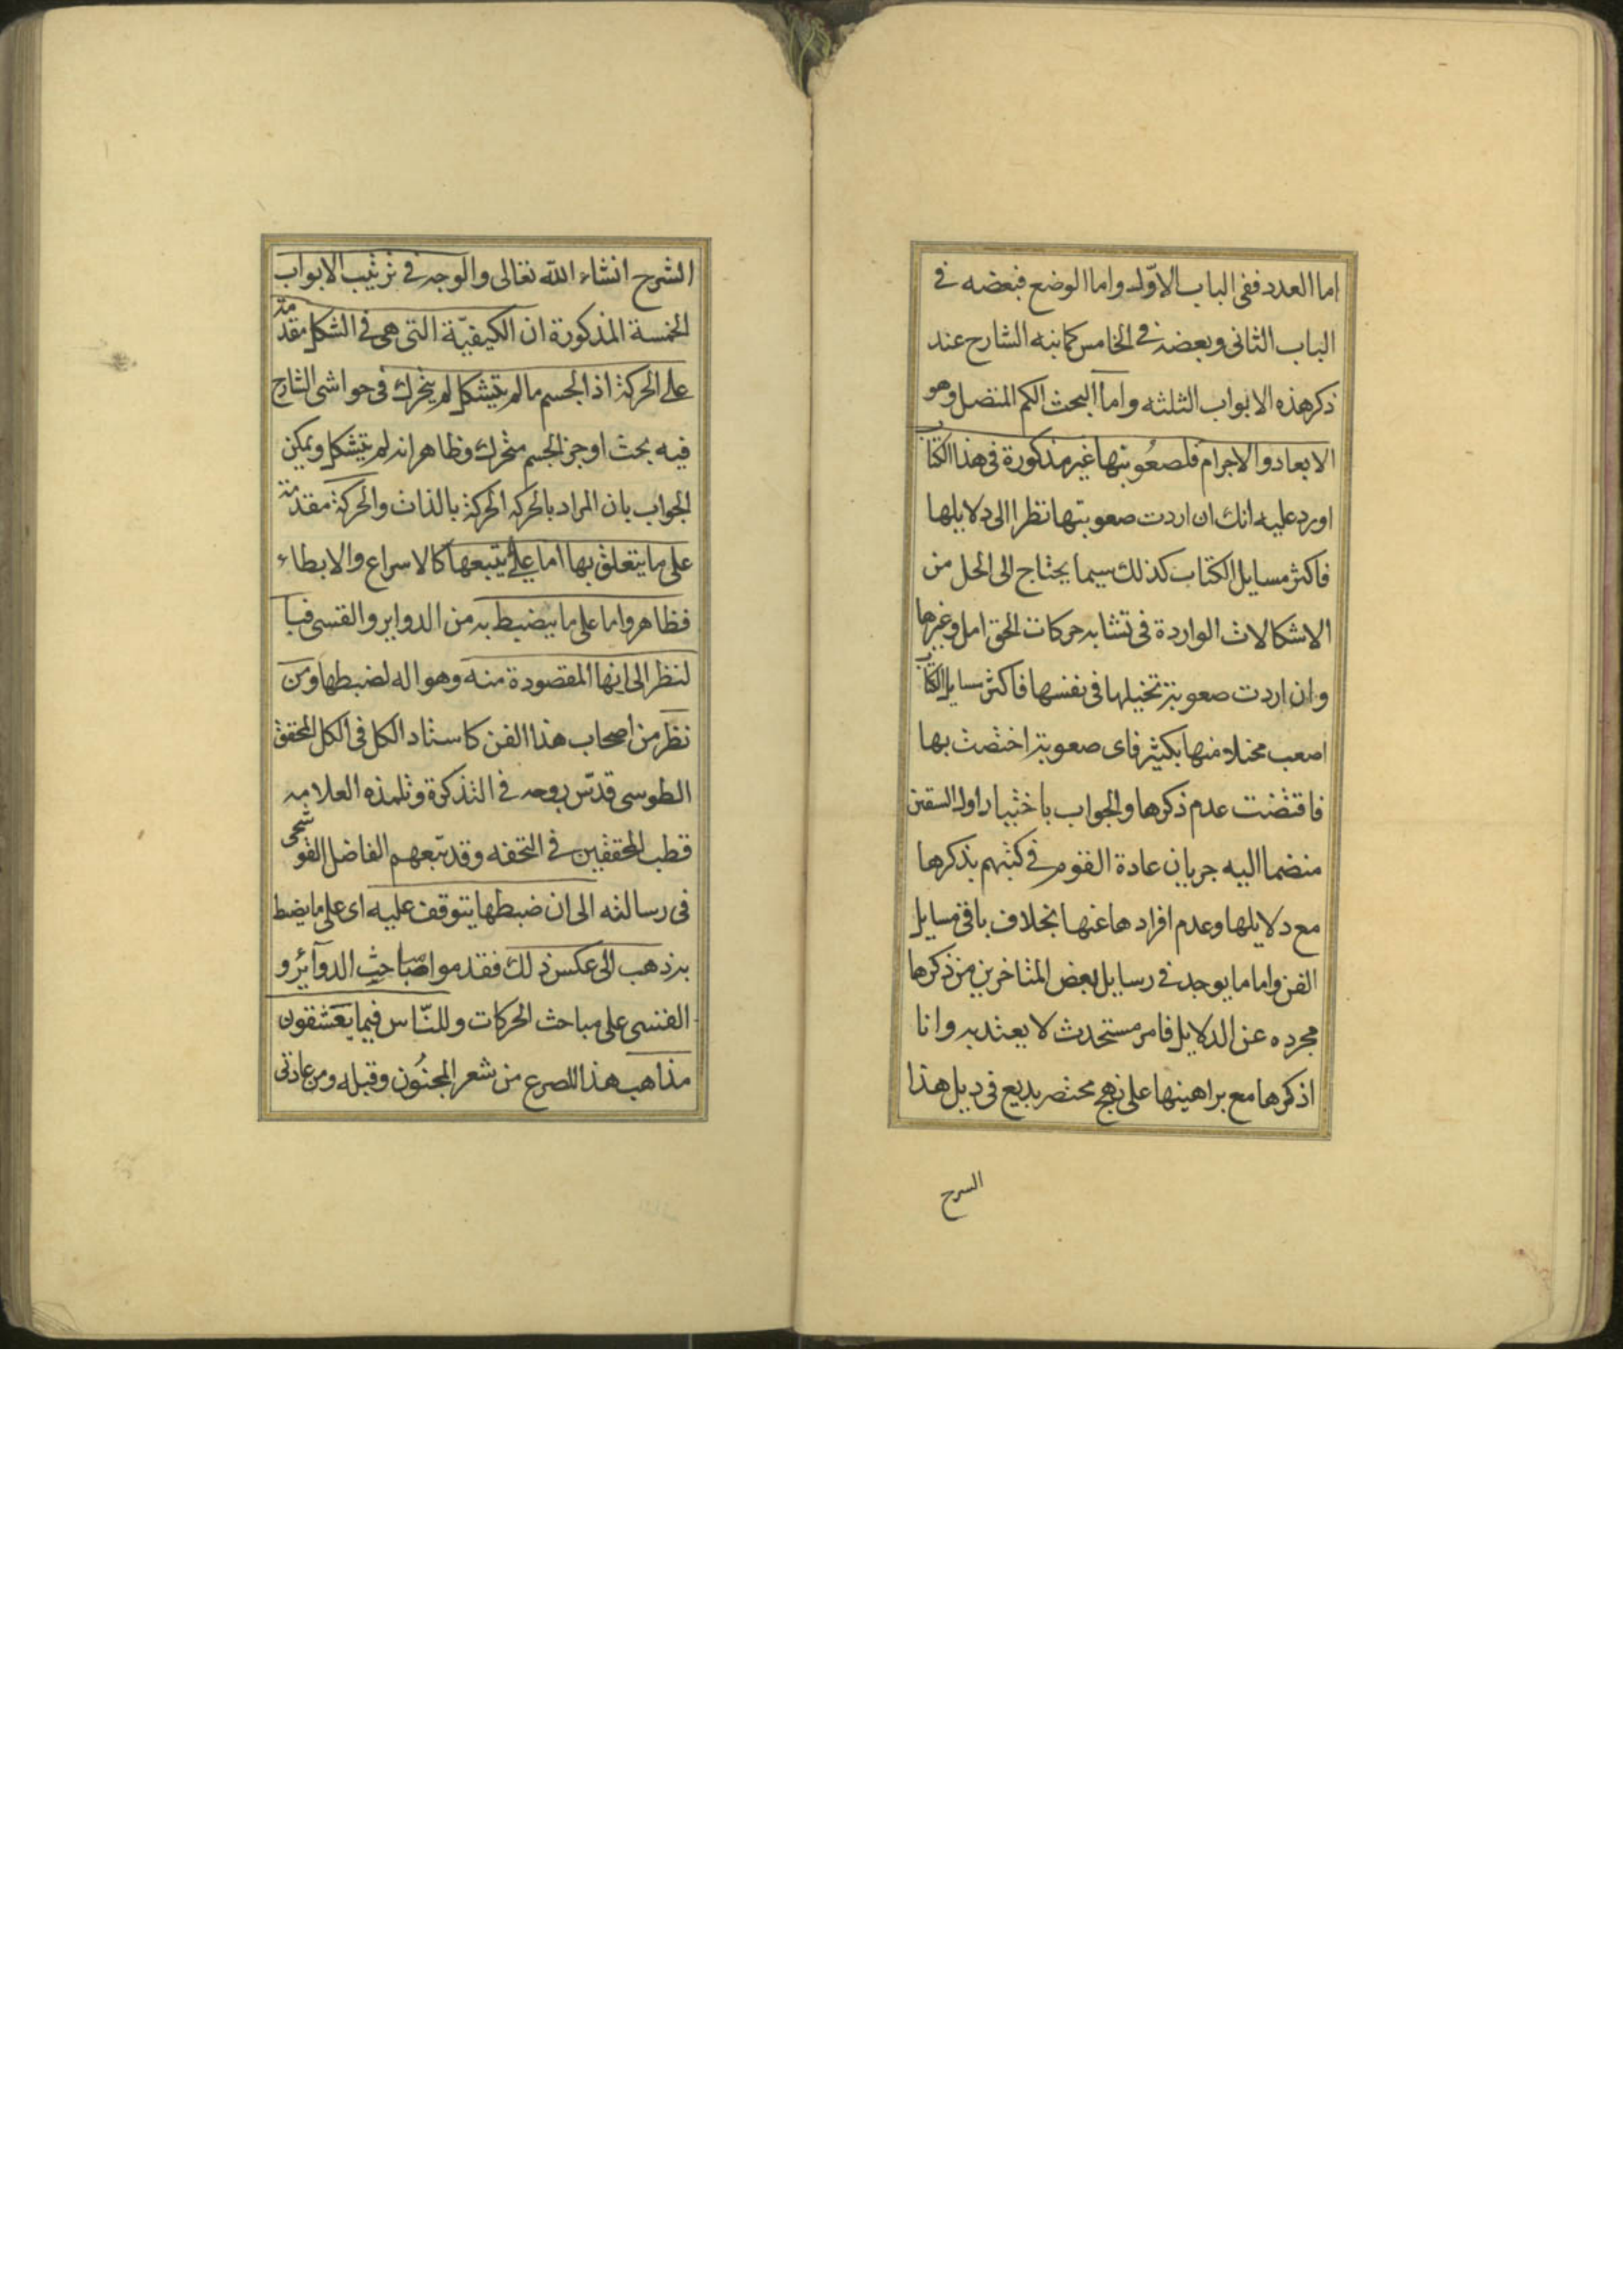 اما العدد ففى الباب الاوّل واما الوضع فبعضه فى
الباب الثانى وبعضه فى الخامس كما نبه الشارح عند
ذكر هذه الابواب الثلثه واما البحث الكم المتصل وهو
الابعاد والاجرام فلصعُوبتها غير مذكورة فى هذا الكتاب
اورد عليه انك ان اردت صعوبتها نظرا الى دلايلها
فاكثر مسايل الكتاب كذلك سيما يحتاج الى الحل من
الاشكالات الواردة فى تشابه حركات الحوامل وغيرها
وان اردت صعوبة تخيلها فى نفسها فاكثر مسايل الكتاب
اصعب مخيلا منها بكثير فاى صعوبة اختصت بها
فاقتضت عدم ذكرها والجواب باختيار اول الشقين
منضما اليه جريان عادة القوم فى كتبهم بذكرها
مع دلايلها وعدم افرادها عنها بخلاف باقى مسايل
الفن واما ما يوجد فى رسايل بعض المتاخرين من ذكرها
مجرده عن الدلايل فامر مستحدث لا يعتد به وانا
اذكرها مع براهينها على نهج مختصر بديع فى ديل هذا
السرح
الشرح انشاء الله تعالى والوجه فى ترتيب الابواب
الخمسة المذكورة ان الكيفيّة التى هى فى الشكل مقدمة
على الحركة اذ الجسم ما لم يتشكل لم يتحرك فى حواشى الشارح
فيه بحث اوجز الجسم متحرك وظاهر انه لم يتشكل ويمكن
الجواب بان المراد بالحركه الحركة بالذات والحركة مقدمة
على ما يتعلق بها اما على يتبعها كالاسراع والابطاء
فظاهر واما على ما ينضبط به من الدواير والقسى فبا
لنظر الى انها المقصودة منه وهو اله لضبطها ومن
نظر من اصحاب هذا الفن كاستاد الكل فى الكل المحقق
الطوسى قدّس روحه فى التذكرة وتلمذه العلامه
قطب المحققين فى التحفه وقد تبعهم الفاضل القوشجى
فى رسالته الى ان ضبطها يتوقف عليه اى على ما يضبط
به ذهب الى عكس ذلك فقدموا مباحث الدوآئر و
القسى على مباحث الحركات وللنّاس فيما يعشقون
مذاهب هذا المصرع من شعر المجنُون وقبله ومن عادتى